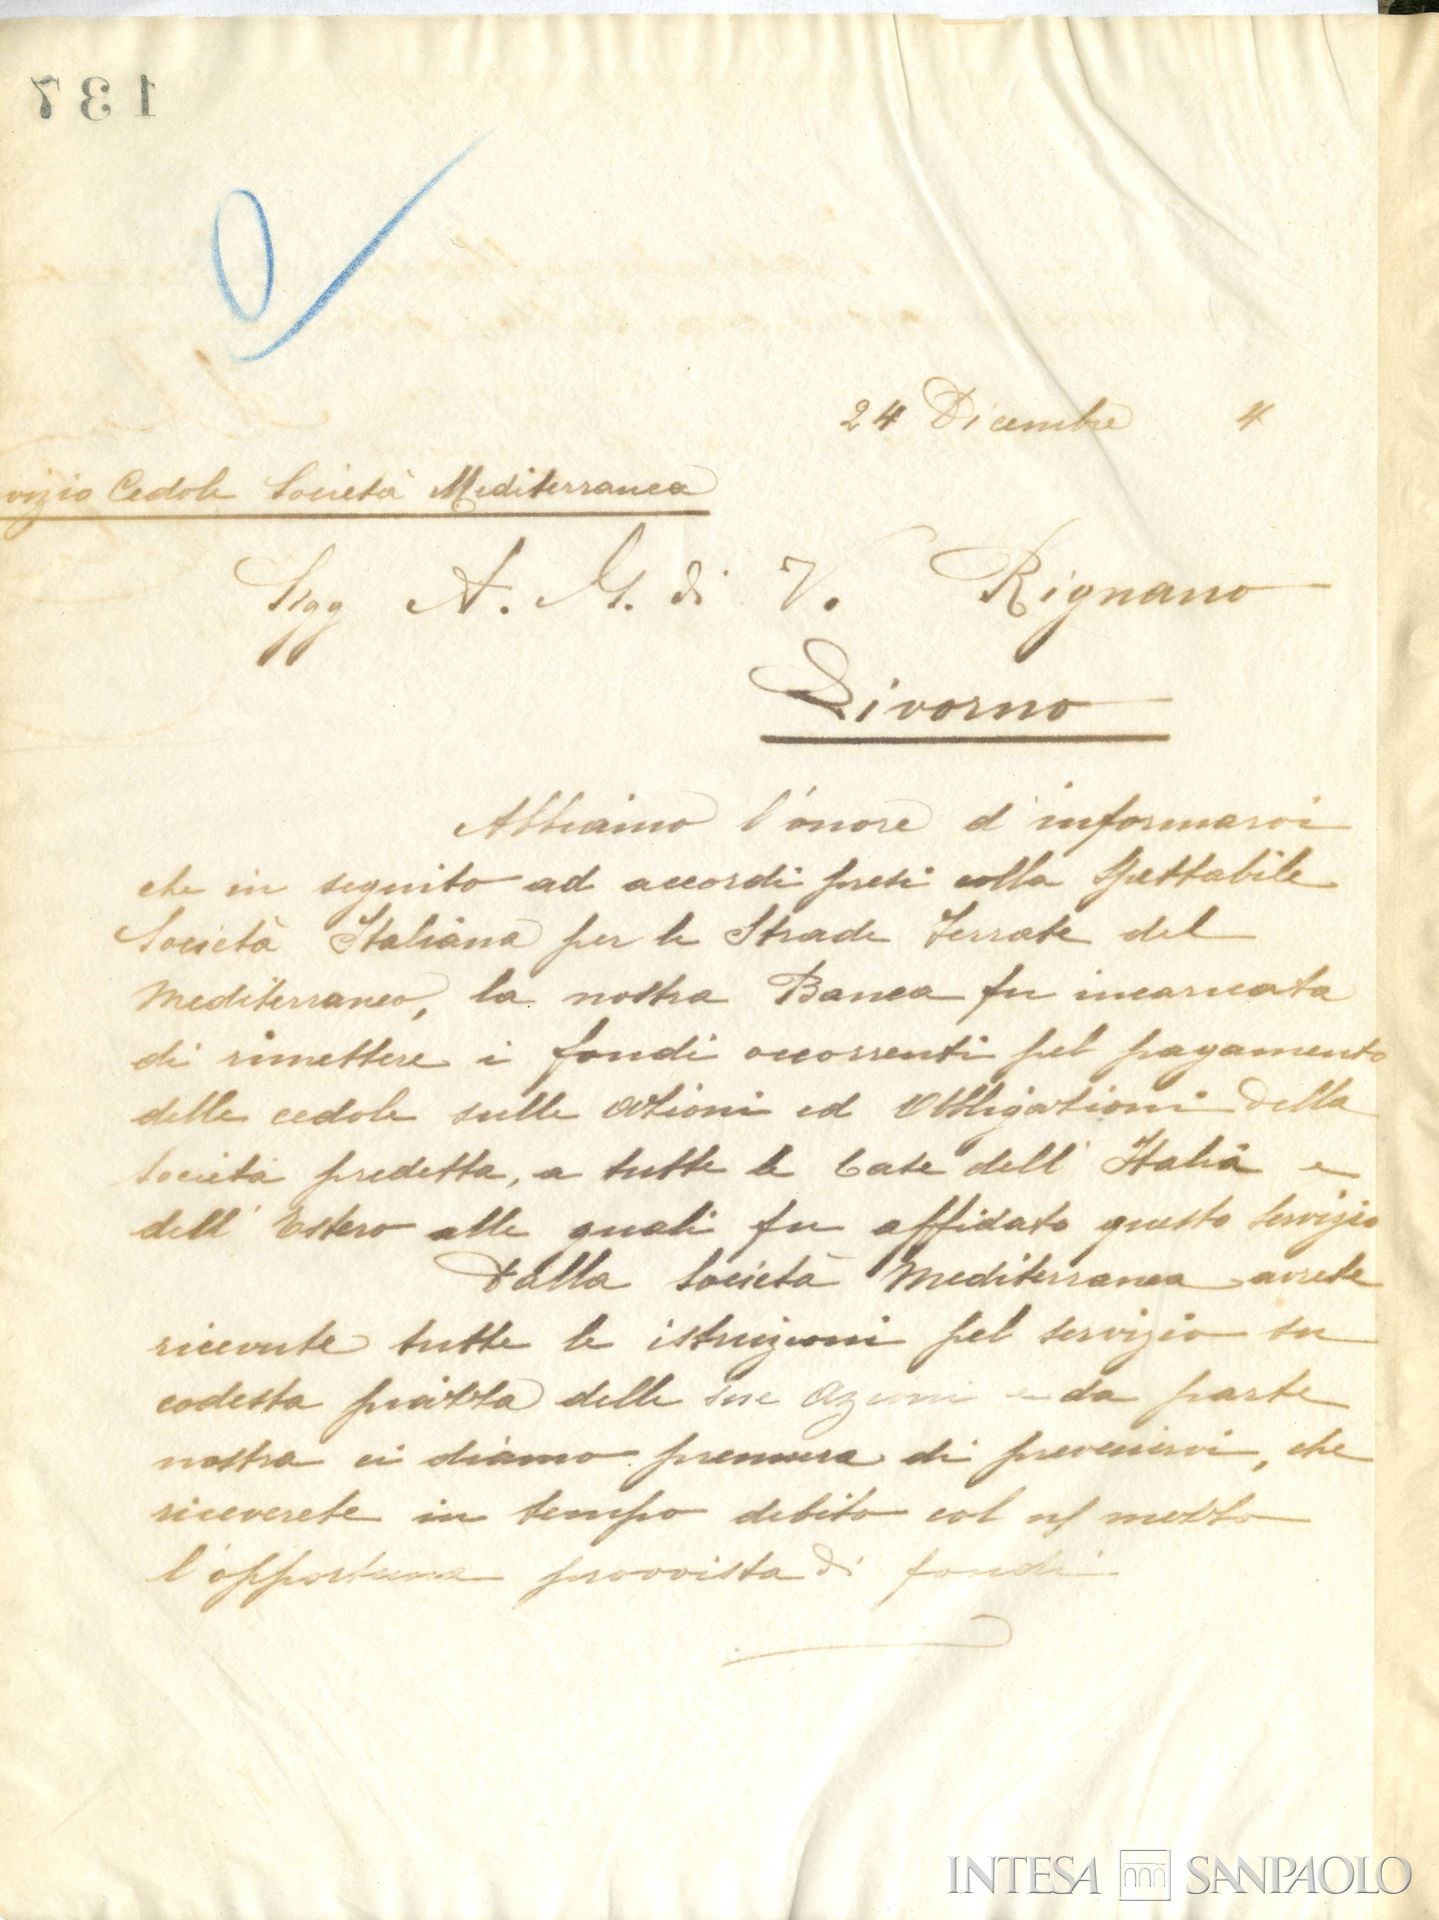 137
24 Dicembre 4
vizio Cedole Società Mediterranea
Sigg A. G. di V. Rignano
Livorno
Abbiamo l'onore d'informarvi
che in seguito ad accordi presi colla Spettabile
Società Italiana per le Strade Ferrate del
Mediterraneo, la nostra Banca fu incaricata
di rimettere i fondi occorrenti pel pagamento
delle cedole sulle azioni ed Obbligazioni della
Società predetta, a tutte le Case dell'Italia e
dell'Estero alle quali fu affidato questo servizio
Dalla Società Mediterranea avrete
ricevute tutte le istruzioni pel servizio su
codesta piazza delle sue Azioni e da parte
nostra ci diamo premura di prevenirvi, che
riceverete in tempo debito col n/ mezzo
l'opportuna provvista di fondi
INTESA SANPAOLO